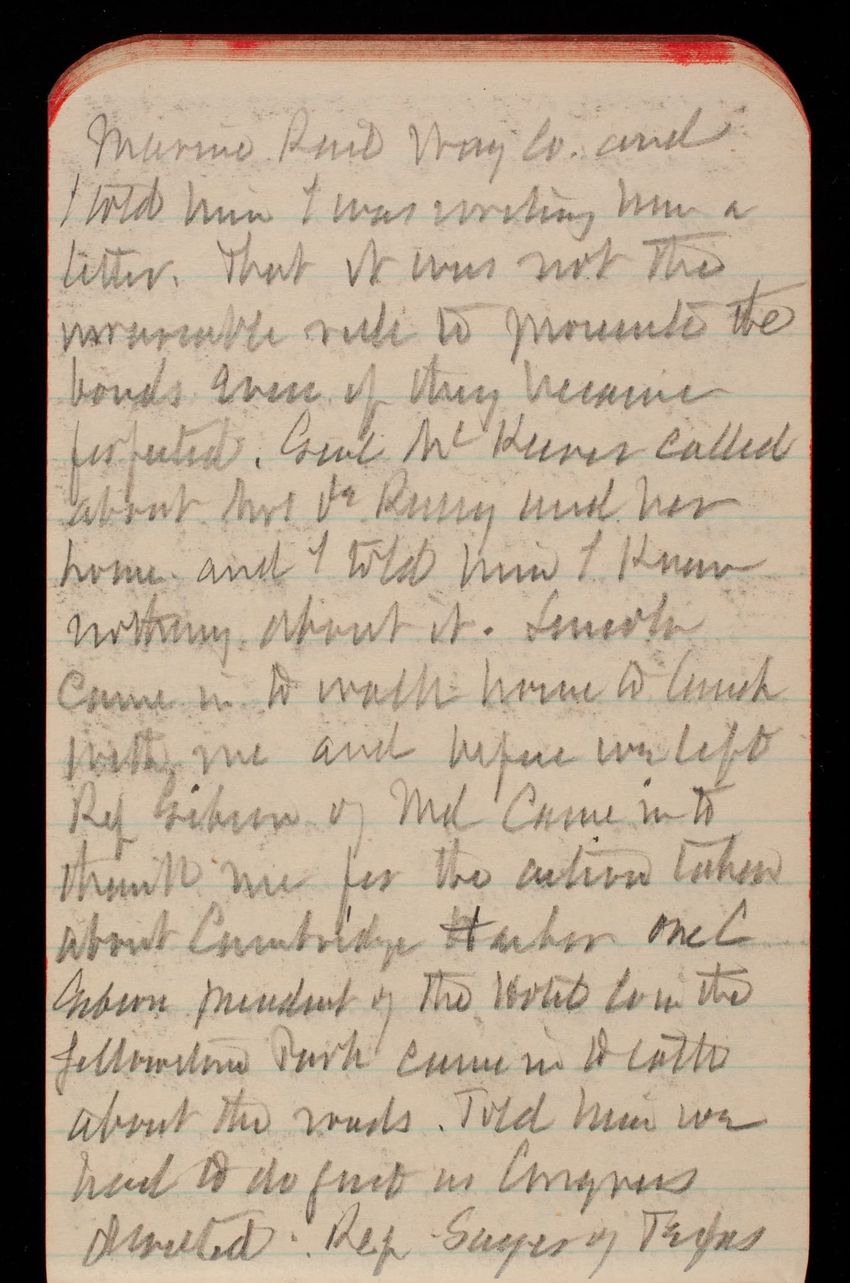 Marine Rail Way Co. and
I told him I was writing him a
letter. That it was not the
invariable rule to promote the
bonds even if they became
forfeited. Genl McKeever called
about Mrs De Russy and her
home and I told him I knew
nothing about it. Lincoln
came in to walk home to lunch
with me and before we left
Rep Gibson of Md came in to
thank me for the action taken
about Cambridge Harbor one C
Gibson president of the Hotel Co in the
Yellowstone Park came in to talk
about the roads. Told him we
had to do just as Congress
directed. Rep Sayers of Texas